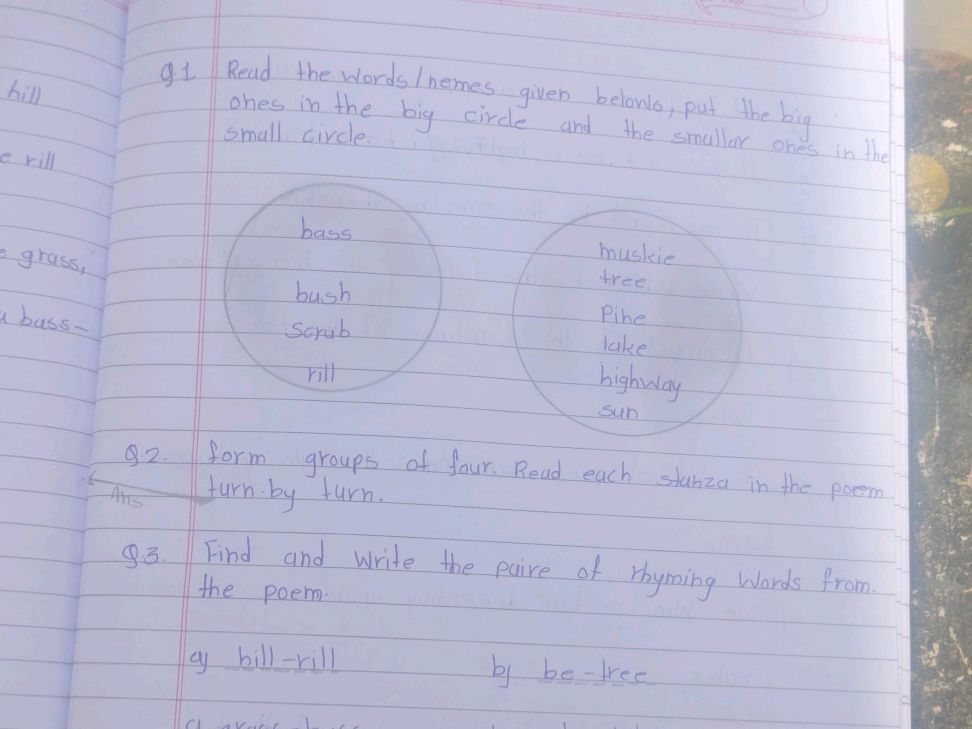 hill
e rill
e grass,
a bass-
Q1 Read the words/nemes given belowo, put the big
ones in the big circle and the smallar ones in the
small circle.
bass
bush
Scrub
rill
muskie
tree.
Pine
lake
highway
sun
Q.2. form groups of four. Read each stanza in the poem
Ans. turn by turn.
Q.3. Find and Write the paire of rhyming Words from.
the poem.
a) hill-rill b) be-tree